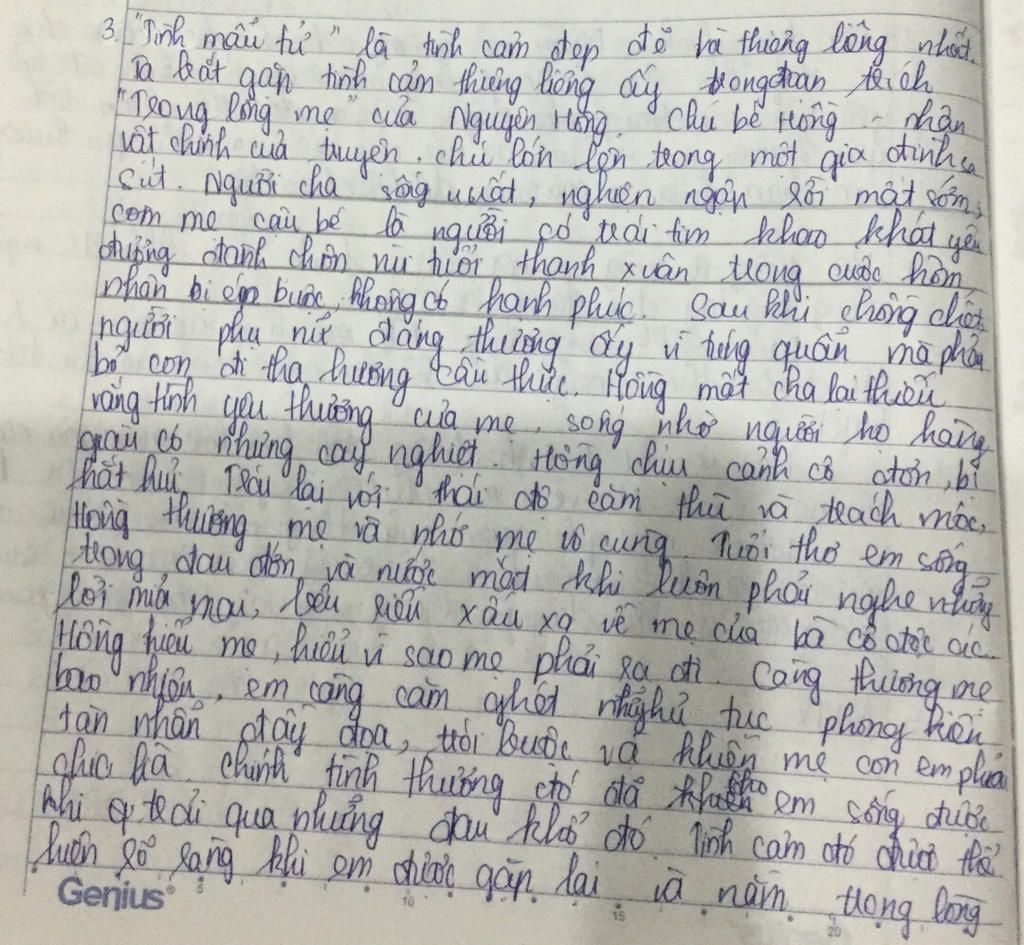 3. "Tình mẫu tử" là tình cảm đẹp đẽ và thiêng liêng nhất.
Ta bắt gặp tình cảm thiêng liêng ấy trong đoạn trích
"Trong lòng mẹ" của Nguyên Hồng. Chú bé Hồng - nhân
vật chính của truyện, chú lớn lên trong một gia đình sa
sút. Người cha sống u uất, nghiện ngập rồi mất sớm,
còn mẹ cậu bé là người có trái tim khao khát yêu
đương đành chôn vùi tuổi thanh xuân trong cuộc hôn
nhân bị ép buộc, không có hạnh phúc. Sau khi chồng chết,
người phụ nữ đáng thương ấy vì túng quẫn mà phải
bỏ con đi tha hương cầu thực. Hồng mất cha lại thiếu
vắng tình yêu thương của mẹ, sống nhờ người họ hàng
giàu có nhưng cay nghiệt. Hồng chịu cảnh cô đơn, bị
hắt hủi. Trái lại với thái độ căm thù và trách móc,
Hồng thương mẹ và nhớ mẹ vô cùng. Tuổi thơ em sống
trong đau đớn và nước mắt khi luôn phải nghe những
lời mỉa mai, bêu riếu xấu xa về mẹ của bà cô độc ác.
Hồng hiểu mẹ, hiểu vì sao mẹ phải ra đi. Càng thương mẹ
bao nhiêu, em càng căm ghét hủ tục phong kiến
tàn nhẫn đầy đọa, trói buộc và khiến mẹ con em phải
chia lìa. Chính tình thương đó đã cho em sống được
khi trải qua những đau khổ đó. Tình cảm đó được thể
hiện rõ ràng khi em được gặp lại và nằm trong lòng
Genius
5 10 15 20